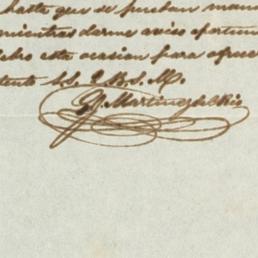 hasta que se puedan man
mientras darme aviso oportun
lebro esta ocasion para ofrece
tento S.S. Q.B.S.M.
Martinez del Rio